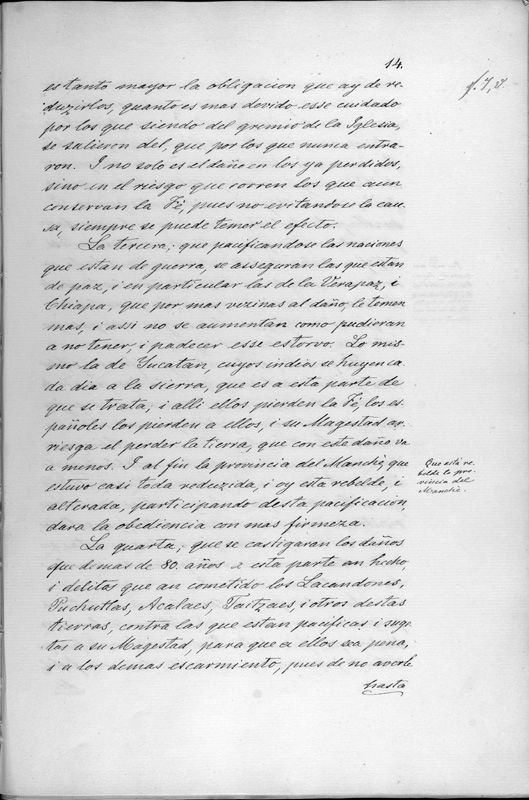 14.
f. 7, v.
es tanto mayor la obligacion que ay de re-
duzirlos, quanto es mas devido esse cuidado
por los que siendo del gremio de la Iglesia,
se salieron del, que por los que nunca entra-
ron. I no solo es el daño en los ya perdidos,
sino en el riesgo que corren los que aun
conservan la Fè, pues no evitandose la cau-
sa, siempre se puede temer el efecto.
La tercera; que pacificandose las naciones
que estan de guerra, se asseguran las que estan
de paz, i en particular las de la Verapaz, i
Chiapa, que por mas vezinas al daño, le temen
mas, i assi no se aumentan como pudieran
a no tener, i padecer esse estorvo. Lo mis-
mo la de Yucatan, cuyos indios se huyen ca-
da dia a la sierra, que es a esta parte de
que se trata, i alli ellos pierden la Fè, los es-
pañoles los pierden a ellos, i su Magestad ar-
riesga el perder la tierra, que con este daño va
a menos. I al fin la provincia del Manchè, que
estuvo casi toda reduzida, i oy esta rebelde, i
alterada, participando desta pacificacion,
dara la obediencia con mas firmeza.
Que està re-
belde la pro-
vincia del
Manchè.
La quarta; que se castigaran los daños
que de mas de 80. años a esta parte an hecho,
i delitos que an cometido los Lacandones,
Puchutlas, Acalaes, Taitzaes, i otros destas
tierras, contra las que estan pacificas, i suge-
tas a su Magestad, para que a ellos sea pena,
i a los demas escarmiento, pues de no averle
hasta